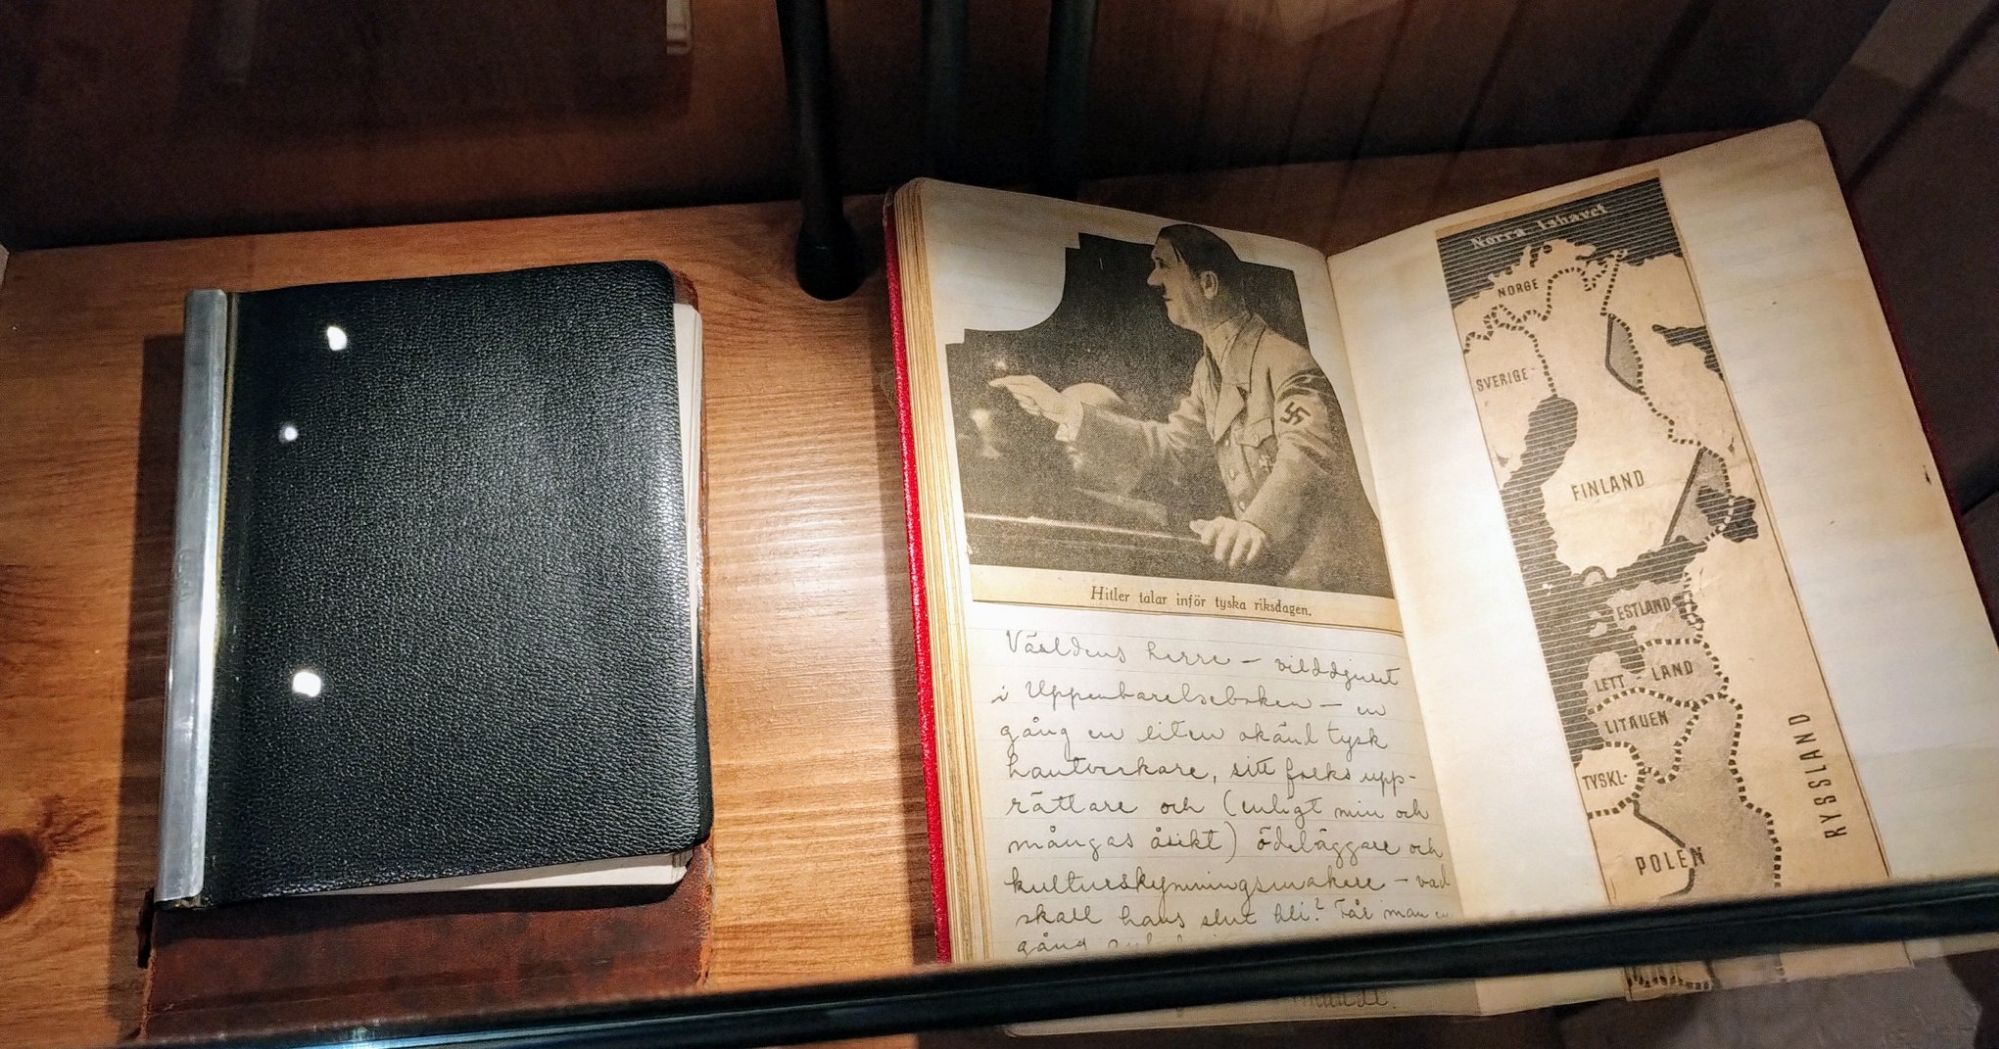 Hitler talar inför tyska riksdagen.
Världens herre – vilddjuret
i Uppenbarelseboken – en
gång en liten okänd tysk
hantverkare, sitt folks upp-
rättare och (enligt min och
mångas åsikt) ödeläggare och
kulturskymningsmakare – vad
skall hans slut bli? Får man en
gång
Norra Ishavet
NORGE
SVERIGE
FINLAND
ESTLAND
LETT LAND
LITAUEN
TYSKL-
POLEN
RYSSLAND